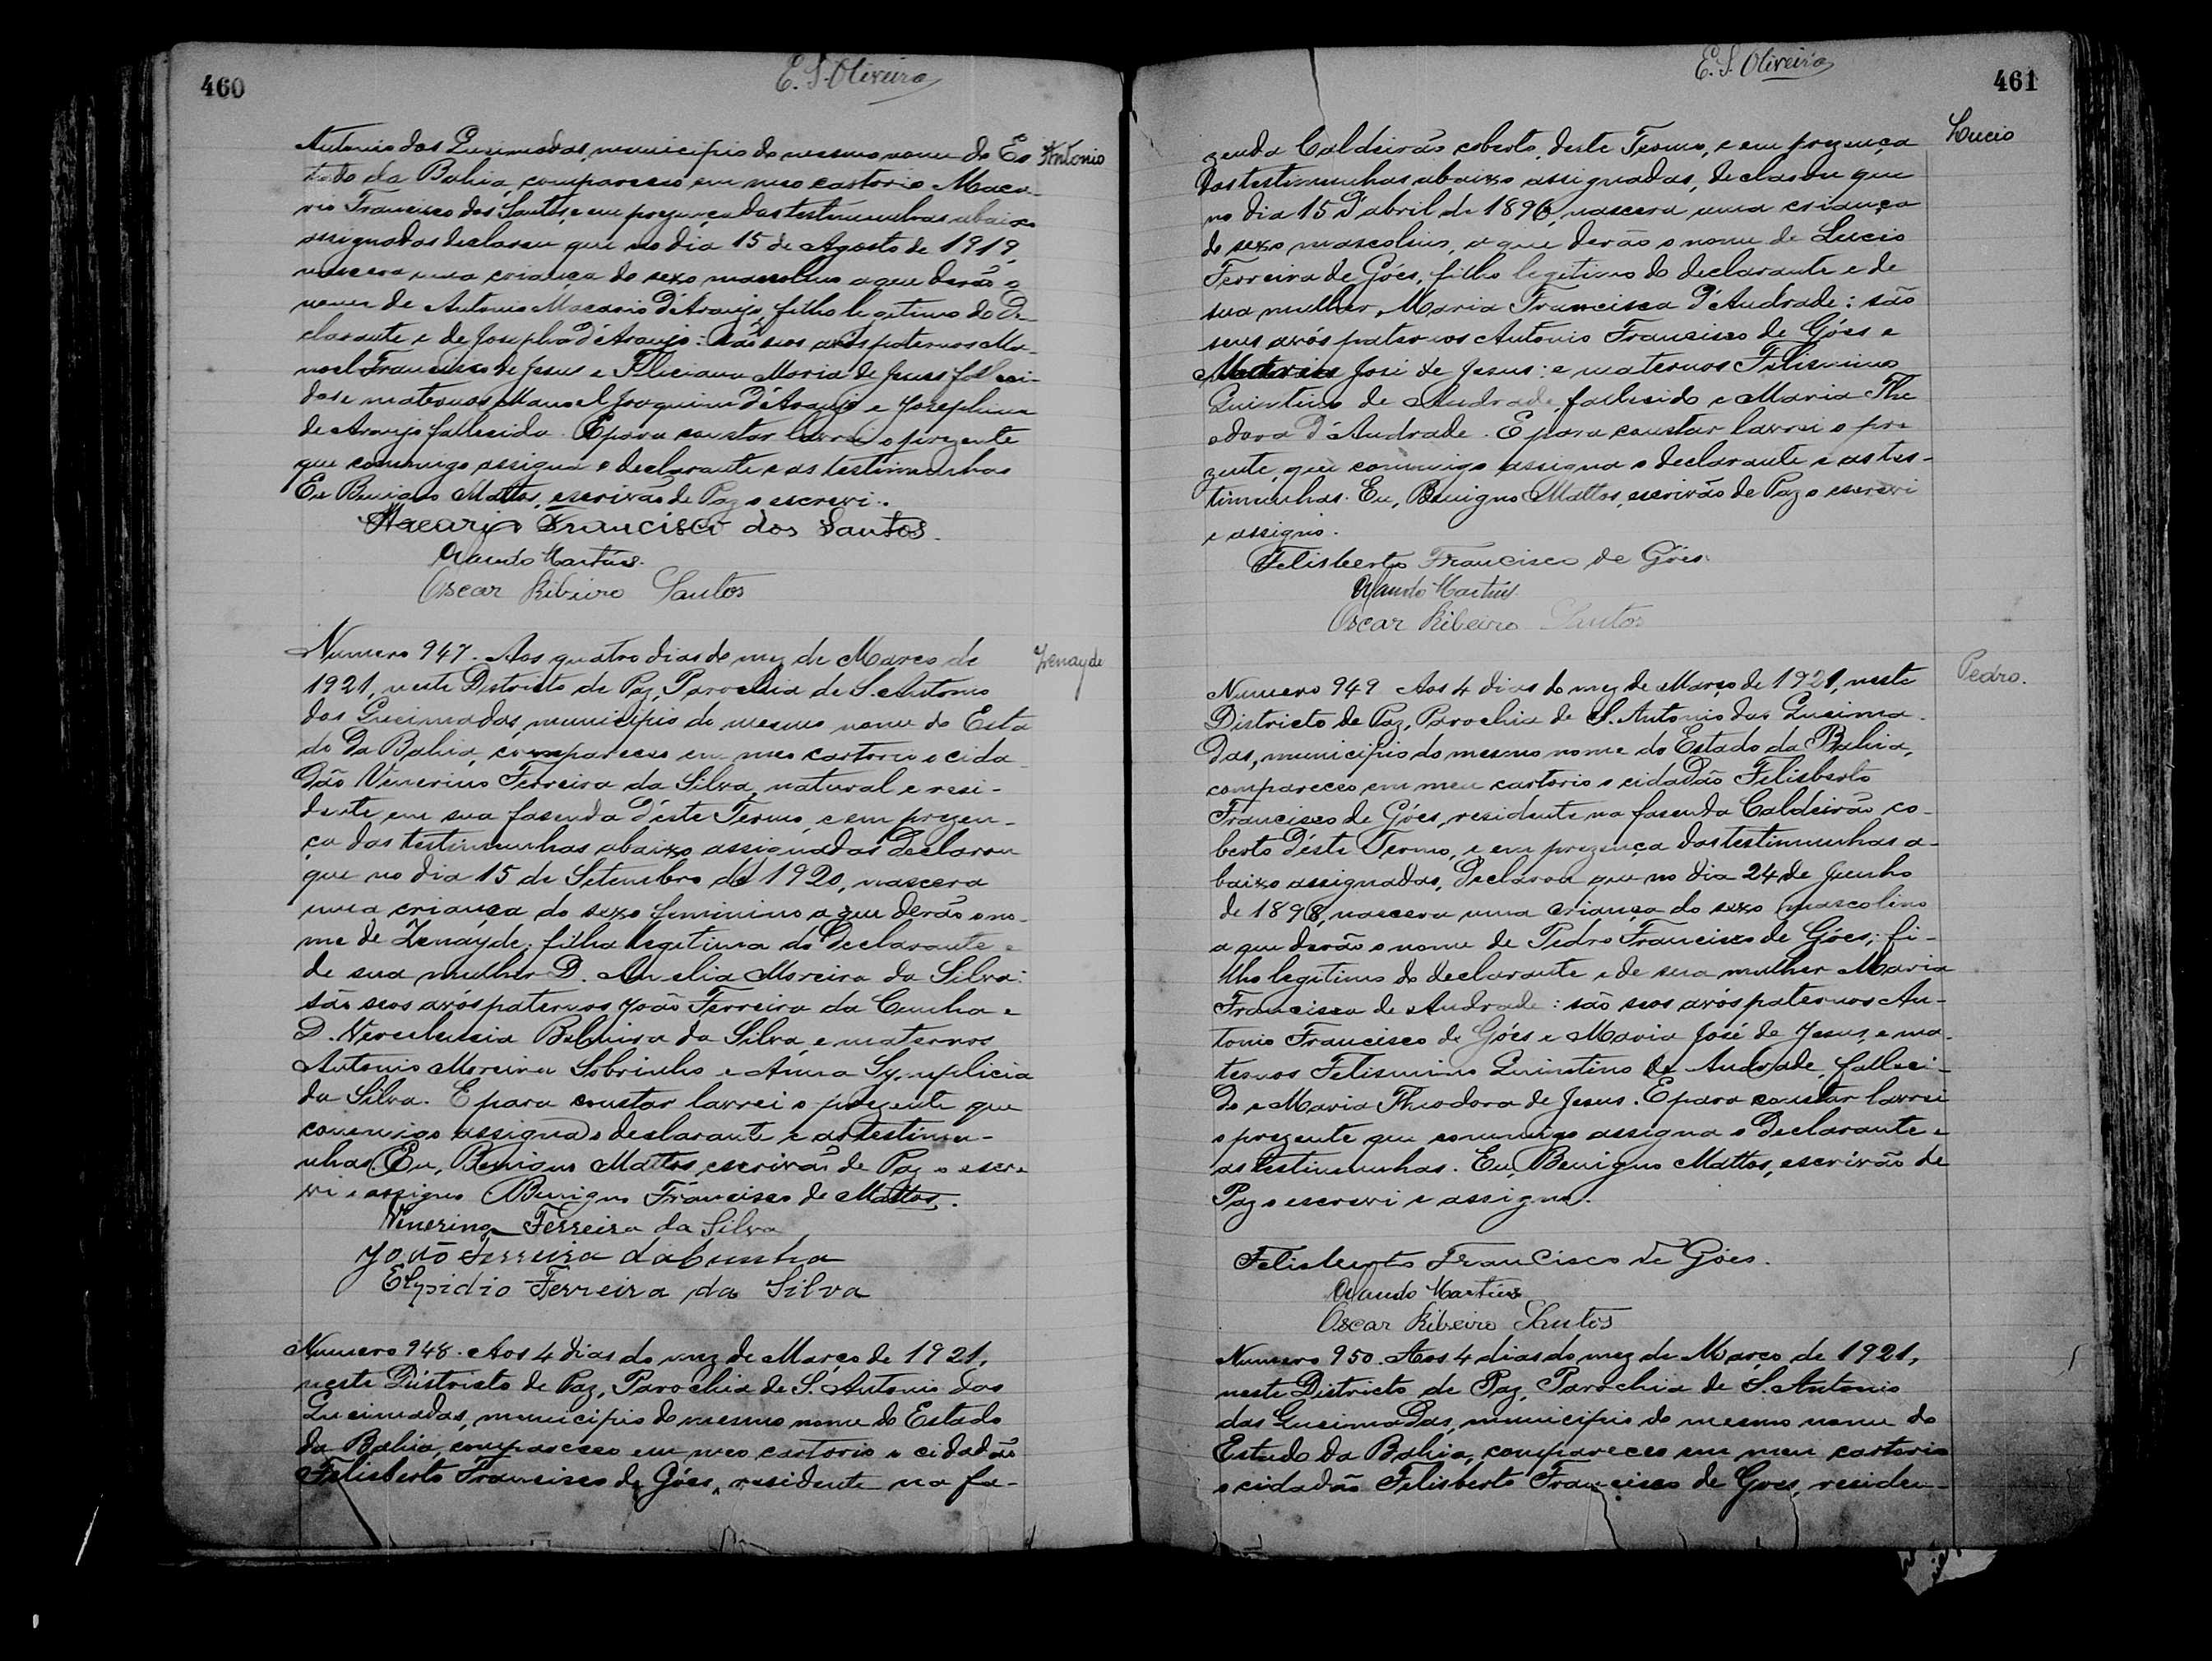 460
E. S. Oliveira
Antonio das Queimadas, municipio do mesmo nome do Es
Antonio
tado da Bahia, compareceo em meo cartorio Maca-
rio Francisco dos Santos, e em prezença das testimunhas abaixo
assignadas declarou que no dia 15 de Agosto de 1919,
nascera uma criança do sexo masculino a que derão o
nome de Antonio Macario d'Araujo, filho legitimo do De
clarante e de Josepha d'Araujo: são seos avós paternos Ma-
noel Francisco de Jesus e Feliciana Maria de Jesus falleci-
dos e maternos Manoel Joaquim d'Araujo e Josephina
de Araujo fallecida. E para constar lavrei o prezente
que commigo assigna o declarante e as testimunhas
Eu Benigno Mattos, escrivão de Paz o escrevi.
Macario Francisco dos Santos.
Orlando Martins.
Oscar Ribeiro Santos
Numero 947. Aos quatro dias do mez de Março de
Zenayde
1921, neste Districto de Paz, Parochia de S. Antonio
das Queimadas, municipio do mesmo nome do Esta
do da Bahia, compareceo em meo cartorio o cida-
dão Venerino Ferreira da Silva, natural e resi-
dente em sua fasenda d'este Termo, e em prezen-
ça das testimunhas abaixo assignadas declarou
que no dia 15 de Setembro de 1920, nascera
uma criança do sexo feminino a que derão o no-
me de Zenayde, filha legitima do Declarante e
de sua mulher D. Amelia Moreira da Silva:
são seos avós paternos João Ferreira da Cunha e
D. Belmira da Silva e maternos
Antonio Moreira Sobrinho e Anna Symplicia
da Silva. E para constar lavrei o prezente que
commigo assigna o declarante e as testimu-
nhas. Eu, Benigno Mattos, escrivão de Paz o escre
vi e assigno Benigno Francisco de Mattos.
Venerino Ferreira da Silva
João Ferreira da Cunha
Elpidio Ferreira da Silva
Numero 948. Aos 4 dias do mez de Março de 1921,
neste Districto de Paz, Parochia de S. Antonio das
Queimadas, municipio do mesmo nome do Estado
da Bahia, compareceo em meo cartorio o cidadão
Felisberto Francisco de Góes, residente na fa-
E. S. Oliveira
461
zenda Caldeirão coberto, deste Termo, e em prezença
Lucio
das testimunhas abaixo assignadas, declarou que
no dia 15 d'abril de 1896, nascera uma criança
do sexo mascolino, a que derão o nome de Lucio
Ferreira de Góes, filho legitimo do declarante e de
sua mulher, Maria Francisca d'Andrade: são
seus avós paternos Antonio Francisco de Góes e
José de Jesus: e maternos Felismino
Quintino de Andrade, fallecido e Maria The
odora d'Andrade. E para constar lavrei o pre
zente, que commigo assigna o declarante e as tes-
timunhas. Eu, Benigno Mattos, escrivão de Paz o escrevi
e assigno.
Felisberto Francisco de Góes.
Orlando Martins.
Oscar Ribeiro Santos
Numero 949 Aos 4 dias do mez de Março de 1921, neste
Pedro.
Districto de Paz, Parochia de S. Antonio das Queima-
das, municipio do mesmo nome do Estado da Bahia,
compareceo em meu cartorio o cidadão Felisberto
Francisco de Góes, residente na fasenda Caldeirão co-
berto d'este Termo, e em prezença das testimunhas a-
baixo assignadas, Declarou que no dia 24 de Junho
de 1898, nascera uma criança do sexo mascolino
a que derão o nome de Pedro Francisco de Góes; fi-
lho legitimo do declarante e de sua mulher Maria
Francisca de Andrade: são seos avós paternos An-
tonio Francisco de Góes e Maria José de Jesus, e ma-
ternos Felismino Quintino de Andrade, falleci-
do e Maria Theodora de Jesus. E para constar lavrei
o prezente que commigo assigna o Declarante e
as testimunhas. Eu, Benigno Mattos, escrivão de
Paz o escrevi e assigno.
Felisberto Francisco de Góes.
Orlando Martins
Oscar Ribeiro Santos
Numero 950. Aos 4 dias do mez de Março de 1921,
neste Districto de Paz, Parochia de S. Antonio
das Queimadas, municipio do mesmo nome do
Estado da Bahia, compareceo em meu cartorio
o cidadão Felisberto Francisco de Goes, residen-